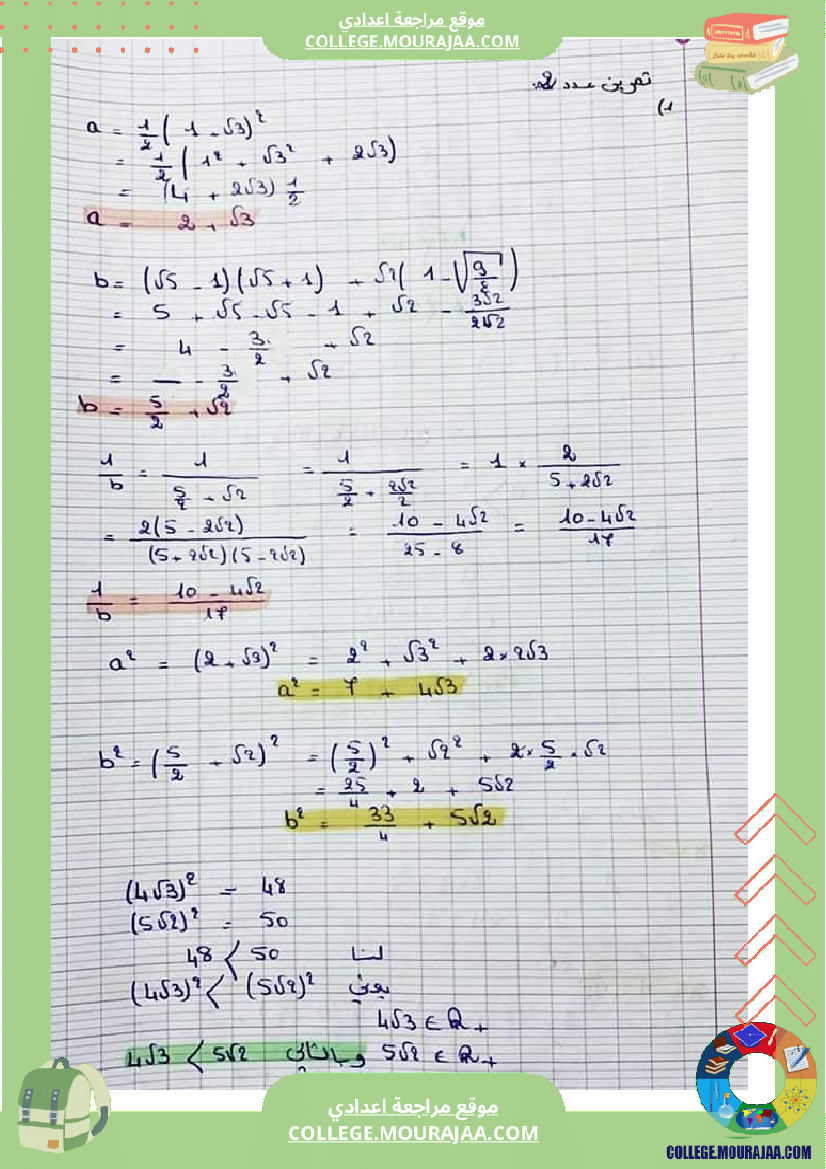 موقع مراجعة اعدادي
COLLEGE.MOURAJAA.COM
تمرين عدد 2.
1)
a = 1/2 (1 + √3)²
= 1/2 (1² + √3² + 2√3)
= (4 + 2√3) 1/2
a = 2 + √3
b = (√5 - 1)(√5 + 1) + √2(1 - √(9/8))
= 5 + √5 - √5 - 1 + √2 - 3√2/2√2
= 4 - 3/2 + √2
= — - 3/2 + √2
b = 5/2 + √2
1/b = 1/(5/2 + √2) = 1/(5/2 + 2√2/2) = 1 × 2/(5 + 2√2)
= 2(5 - 2√2)/((5 + 2√2)(5 - 2√2)) = (10 - 4√2)/(25 - 8) = (10 - 4√2)/17
1/b = (10 - 4√2)/17
a² = (2 + √3)² = 2² + √3² + 2×2√3
a² = 7 + 4√3
b² = (5/2 + √2)² = (5/2)² + √2² + 2×5/2×√2
= 25/4 + 2 + 5√2
b² = 33/4 + 5√2
(4√3)² = 48
(5√2)² = 50
لنا 48 < 50
يعني (4√3)² < (5√2)²
4√3 ∈ ℝ+
5√2 ∈ ℝ+ وبالتالي 4√3 < 5√2
موقع مراجعة اعدادي
COLLEGE.MOURAJAA.COM
COLLEGE.MOURAJAA.COM